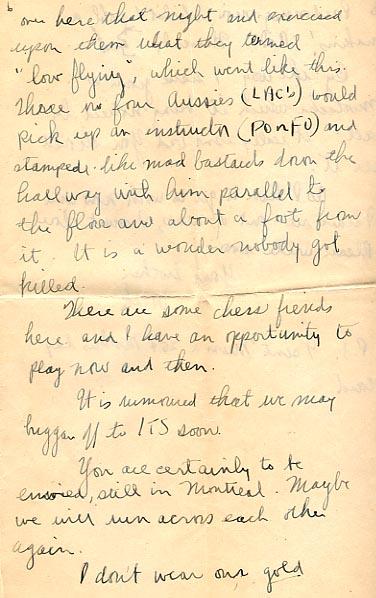 6
over here that night and exercised
upon them what they termed
"low flying", which went like this.
Three or four Aussies (LAC's) would
pick up an instructor (PO or FO) and
stampede like mad bastards down the
hallway with him parallel to
the floor and about a foot from
it. It is a wonder nobody got
killed.
There are some chess fiends
here and I have an opportunity to
play now and then.
It is rumoured that we may
bugger off to ITS soon.
You are certainly to be
envied, still in Montreal. Maybe
we will run across each other
again.
I don't wear our gold